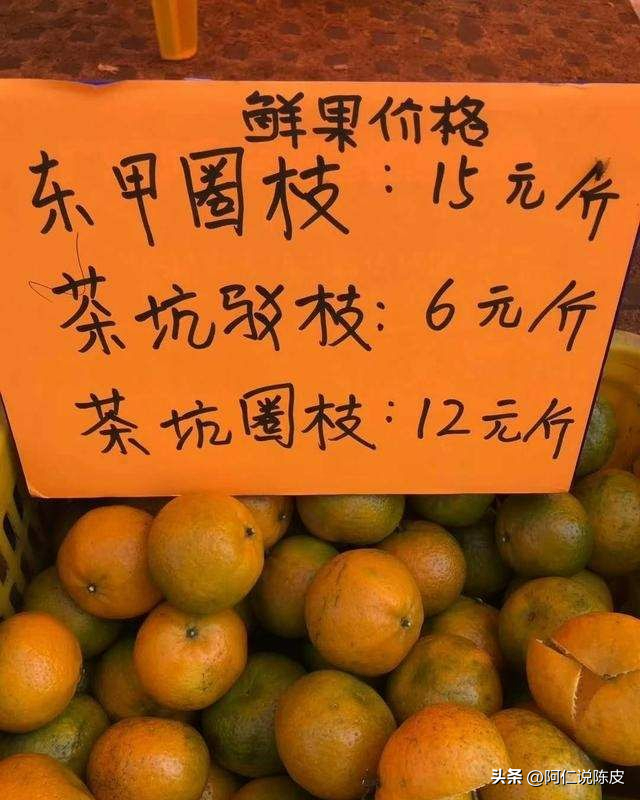 鲜果价格
东甲圈枝：15元/斤
茶坑驳枝：6元/斤
茶坑圈枝：12元/斤
头条 @阿仁说陈皮